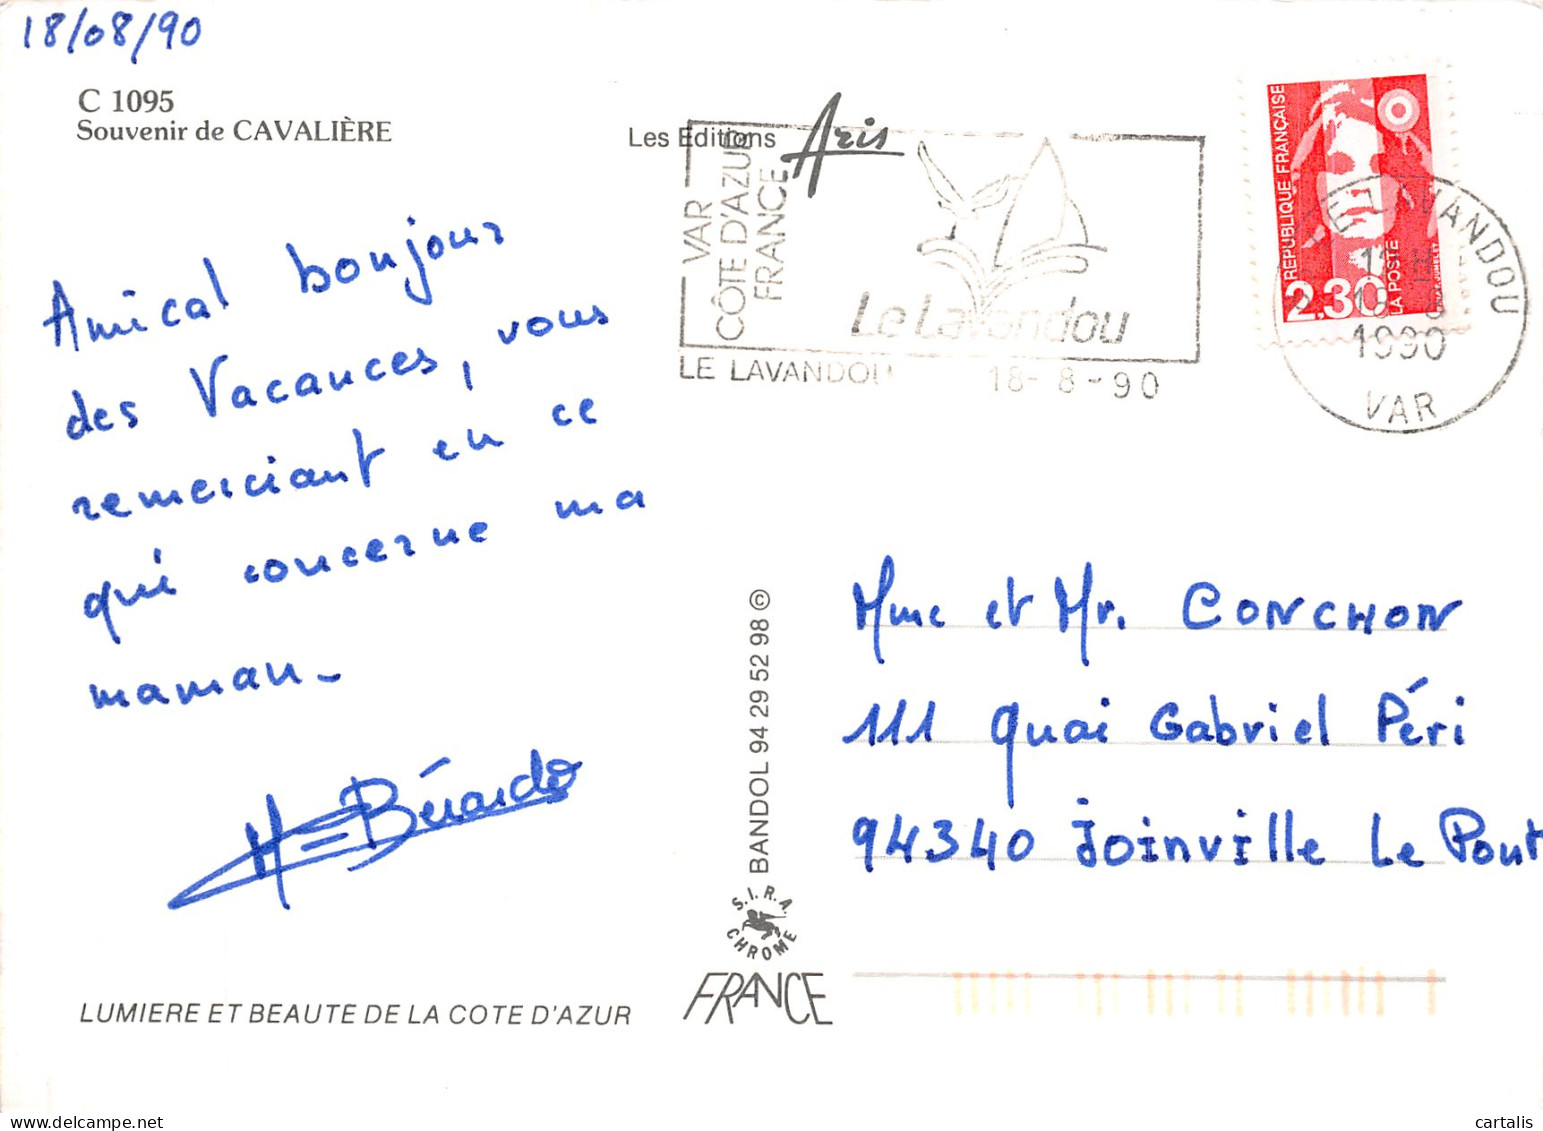 18/08/90
C 1095
Souvenir de CAVALIÈRE
Les Editions Aris
VAR
CÔTE D'AZUR
FRANCE
Le Lavandou
LE LAVANDOU 18-8-90
REPUBLIQUE FRANÇAISE
2.30
LA POSTE
LAVANDOU
1990
VAR
Amical bonjour
des Vacances, vous
remerciant en ce
qui concerne ma
maman-
Bérardo
BANDOL 94 29 52 98 ©
S.I.R.A.
CHROME
FRANCE
Mme et Mr. CONCHON
111 Quai Gabriel Péri
94340 Joinville Le Pont
LUMIERE ET BEAUTE DE LA COTE D'AZUR
cartalis